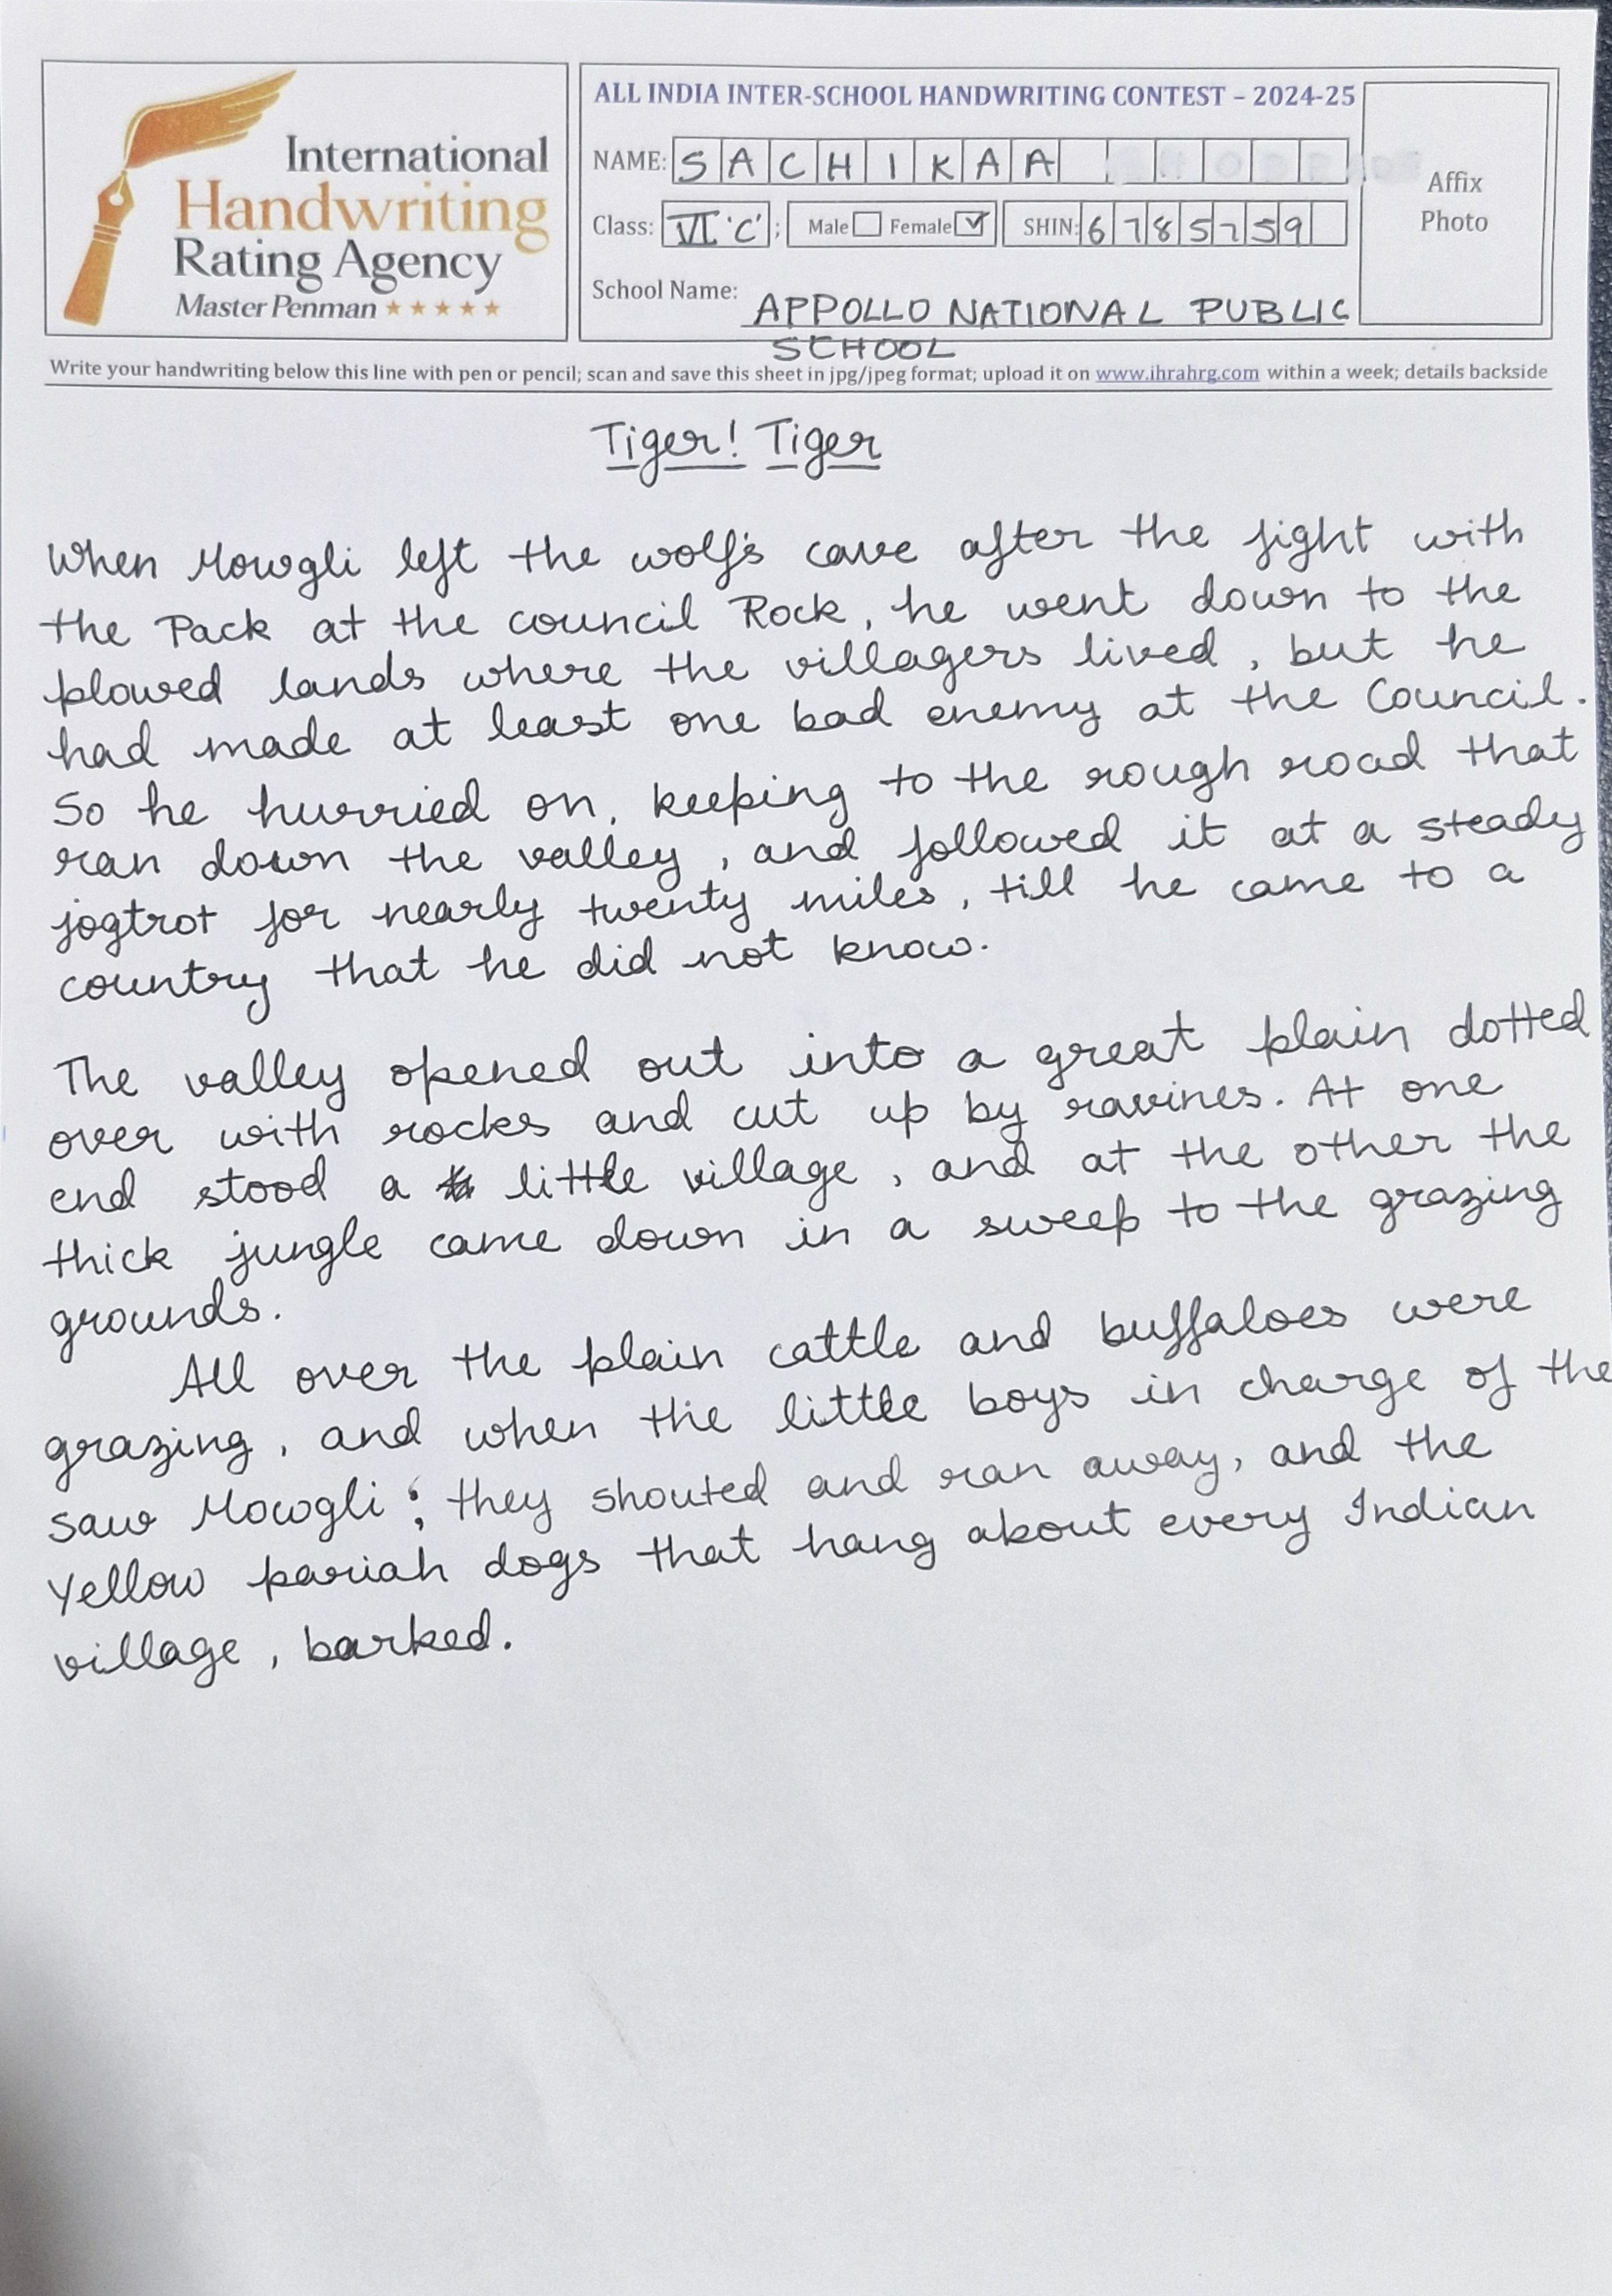 International
Handwriting
Rating Agency
Master Penman
ALL INDIA INTER-SCHOOL HANDWRITING CONTEST – 2024-25
NAME: SACHIKAA
Class: VI 'C'; Male Female SHIN: 6785759
School Name: APPOLLO NATIONAL PUBLIC
SCHOOL
Affix
Photo
Write your handwriting below this line with pen or pencil; scan and save this sheet in jpg/jpeg format; upload it on www.ihrahrg.com within a week; details backside
Tiger! Tiger
When Mowgli left the wolf's cave after the fight with
the Pack at the council Rock, he went down to the
plowed lands where the villagers lived, but he
had made at least one bad enemy at the Council.
So he hurried on, keeping to the rough road that
ran down the valley, and followed it at a steady
jogtrot for nearly twenty miles, till he came to a
country that he did not know.
The valley opened out into a great plain dotted
over with rocks and cut up by ravines. At one
end stood a little village, and at the other the
thick jungle came down in a sweep to the grazing
grounds.
All over the plain cattle and buffaloes were
grazing, and when the little boys in charge of the
saw Mowgli; they shouted and ran away, and the
Yellow pariah dogs that hang about every Indian
village, barked.